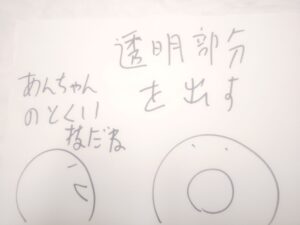 透明部分
を出す
あんちゃん
のとくい
技だね